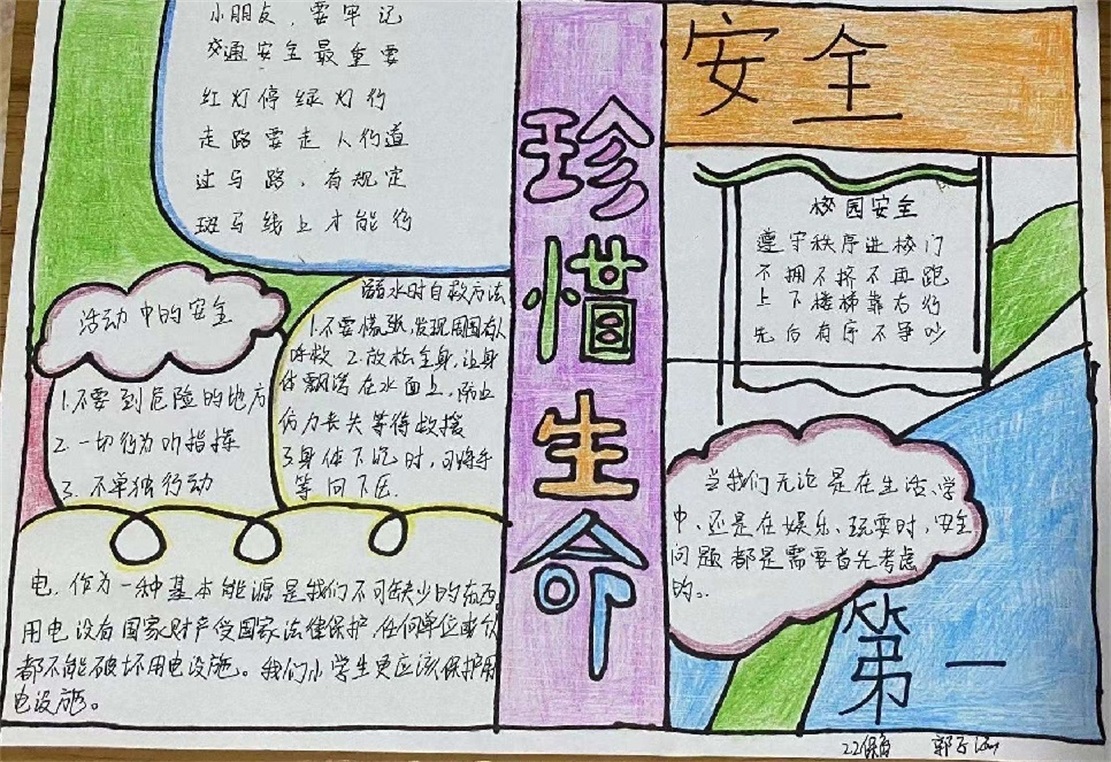 小朋友，要牢记
交通安全最重要
红灯停绿灯行
走路要走人行道
过马路，有规定
斑马线上才能行
活动中的安全
1.不要到危险的地方
2.一切行为听指挥
3.不单独行动
溺水时自救方法
1.不要慌张,发现周围有人
呼救 2.放松全身,让身
体飘浮在水面上,防止
体力丧失等待救援
3.身体下沉时,可将手
向下压.
电,作为一种基本能源是我们不可缺少的东西
用电设有国家财产受国家法律保护,任何单位或个
都不能破坏用电设施。我们小学生更应该保护用
电设施。
珍惜生命
安全
校园安全
遵守秩序进校门
不拥不挤不再跑
上下楼梯靠右行
先后有序不争吵
当我们无论是在生活、学
中、还是在娱乐、玩耍时,安全
问题都是需要首先考虑
的。.
第一